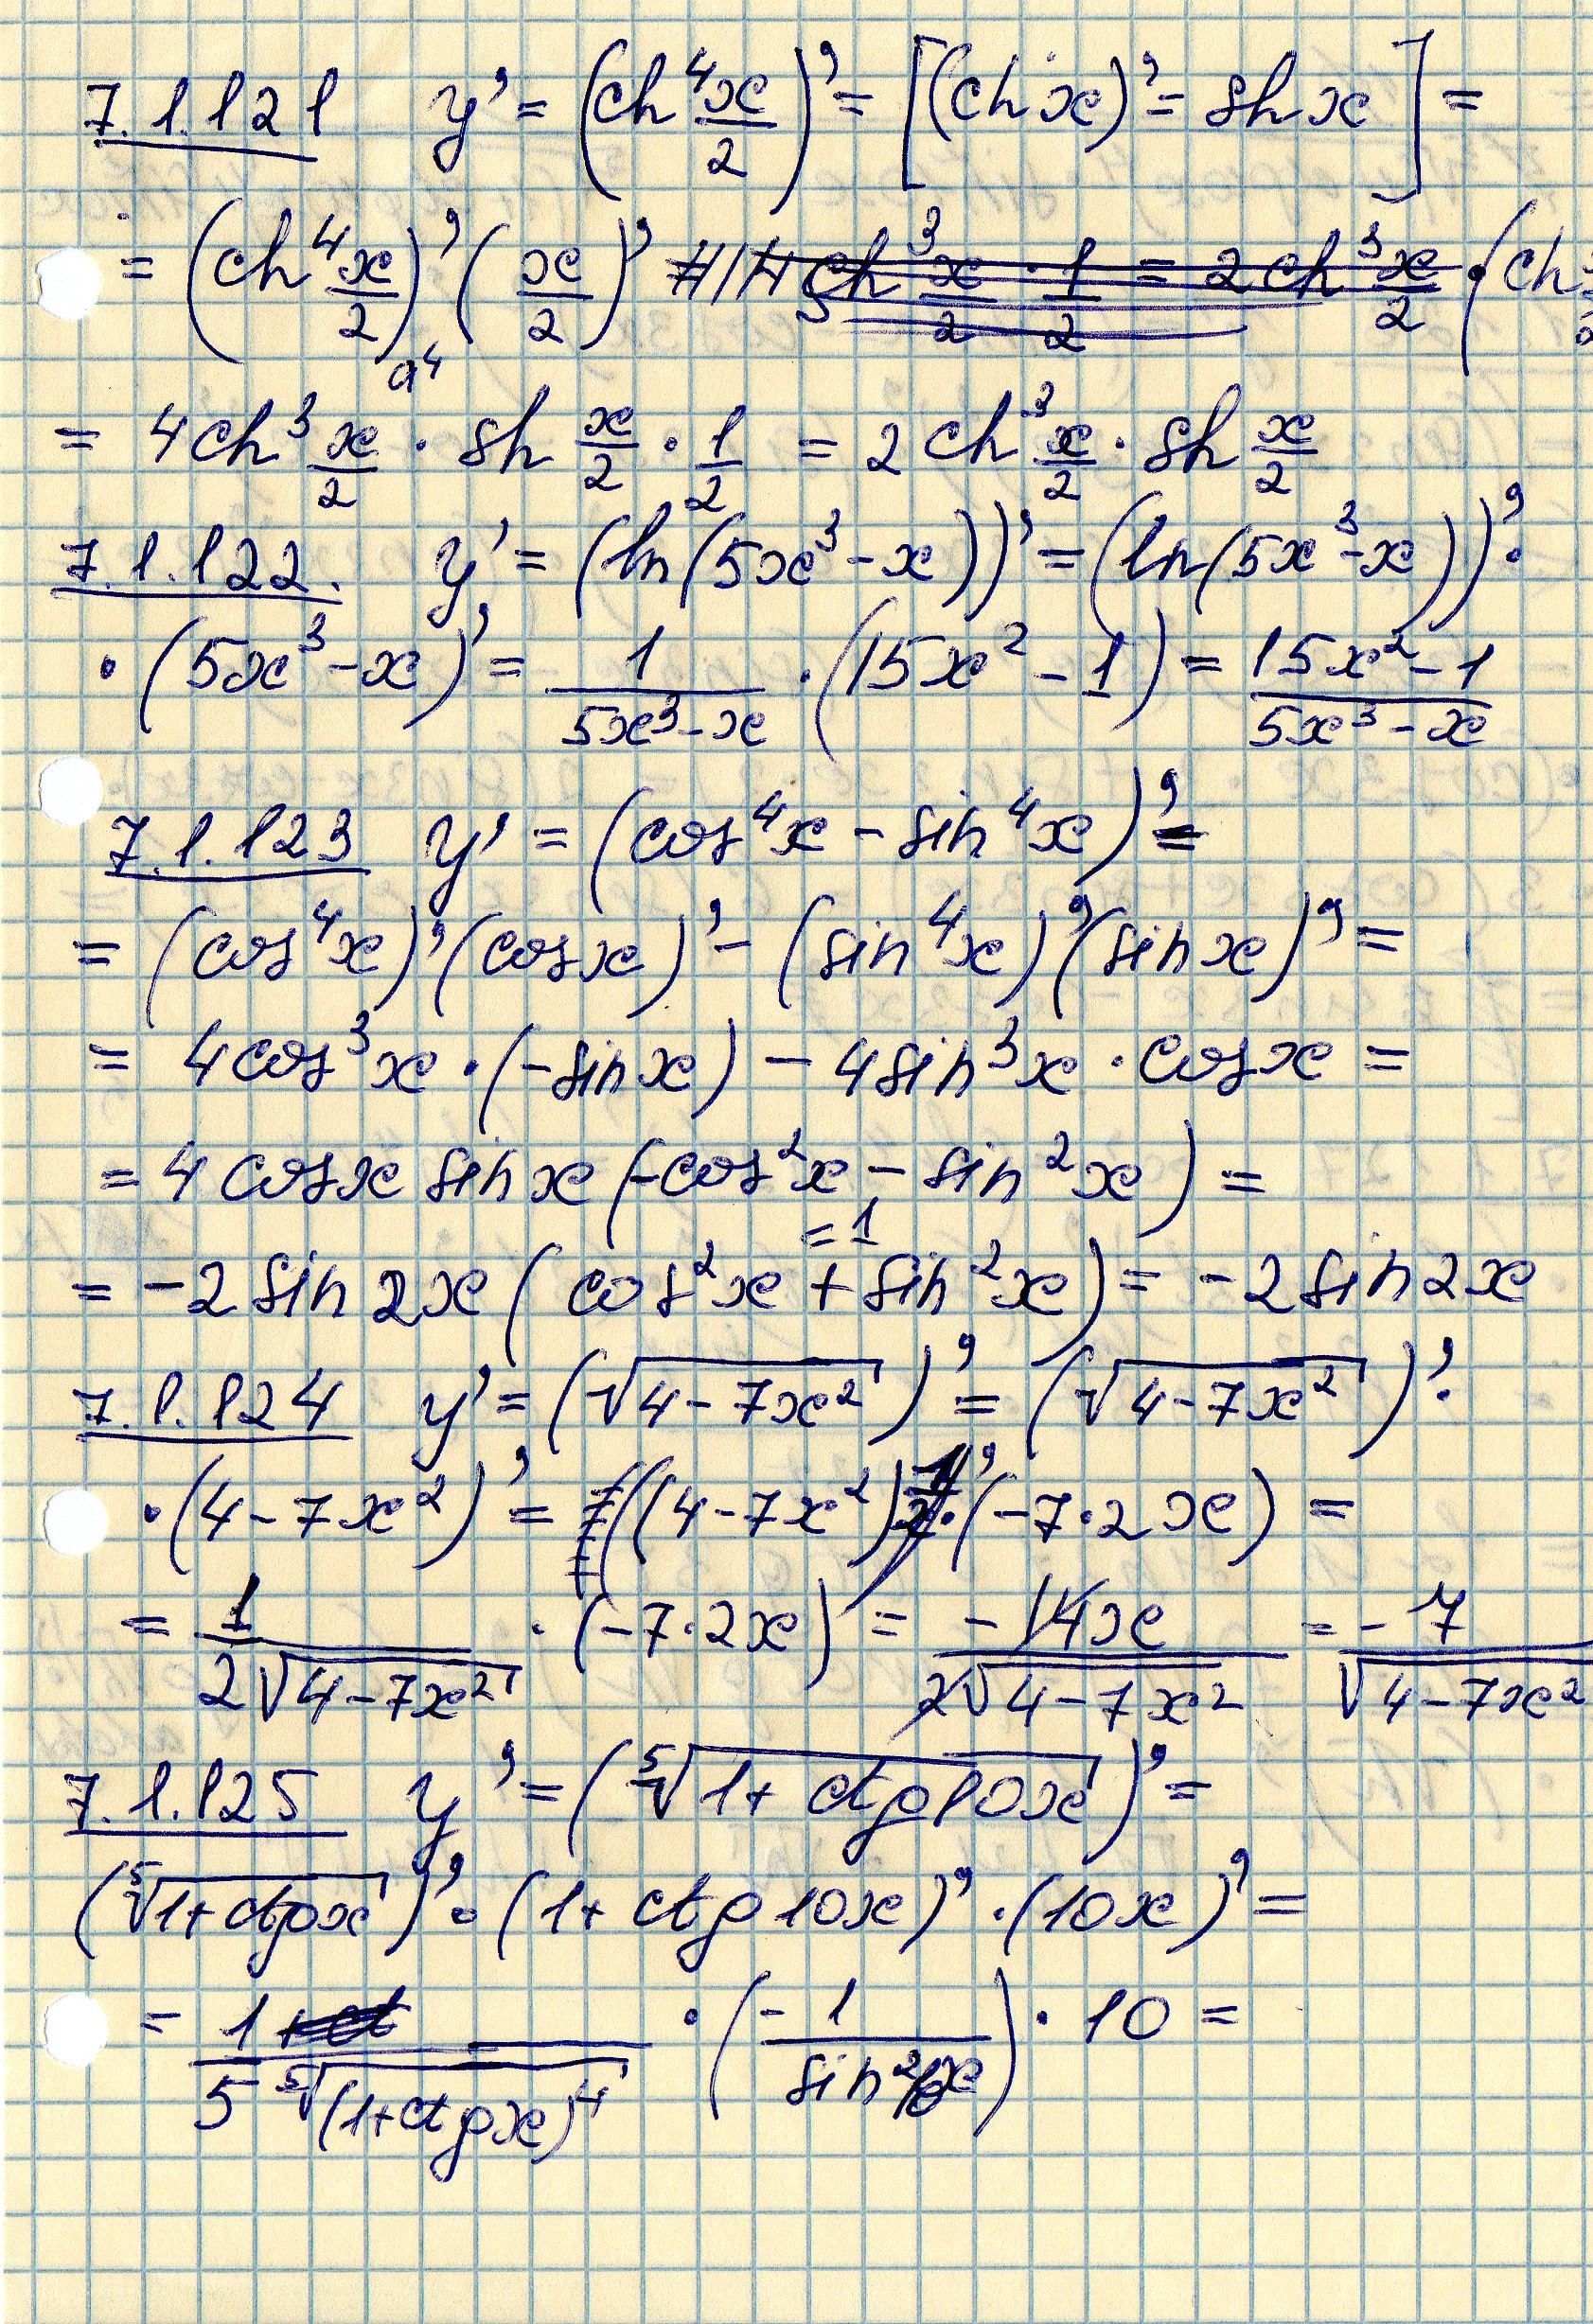 7.1.121 y' = (ch⁴ x/2)' = [(ch x)' = sh x] =
= (ch⁴ x/2)' (x/2)' ch³ x/2 · 1/2 = 2 ch³ x/2 · (ch
a⁴
= 4ch³ x/2 · sh x/2 · 1/2 = 2 ch³ x/2 · sh x/2
7.1.122. y' = (ln(5x³ - x))' = (ln(5x³ - x))' ·
· (5x³ - x)' = 1/(5x³ - x) · (15x² - 1) = (15x² - 1)/(5x³ - x)
7.1.123 y' = (cos⁴x - sin⁴x)' =
= (cos⁴x)' (cosx)' - (sin⁴x)' (sinx)' =
= 4cos³x · (-sinx) - 4sin³x · cosx =
= 4 cosx sinx (-cos²x - sin²x) =
= 1
= -2 sin 2x (cos²x + sin²x) = -2 sin2x
7.1.124 y' = (√(4 - 7x²))' = (√(4 - 7x²))' ·
· (4 - 7x²)' = ((4 - 7x²) · (-7·2x) =
= 1/(2√(4 - 7x²)) · (-7·2x) = -14x/(2√(4 - 7x²)) = -7/√(4 - 7x²)
7.1.125 y' = (⁵√(1 + ctg10x))' =
(⁵√(1 + ctgx))' · (1 + ctg 10x)' · (10x)' =
= 1/(5 ⁵√((1 + ctgx)⁴)) · (-1/sin² x) · 10 =